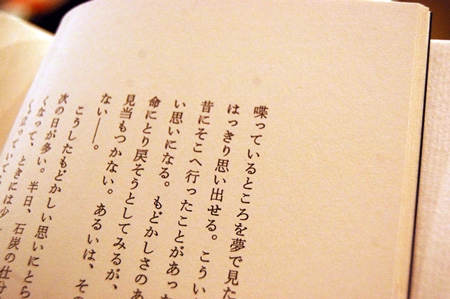 喋っているところを夢で見た
はっきり思い出せる。こうい
昔にそこへ行ったことがあった
い思いになる。もどかしさのあ
命にとり戻そうとしてみるが、
見当もつかない。あるいは、その
ない――。
こうしたもどかしい思いにとら
次の日が多い。半日、石炭の仕分
くなって、ときには少し